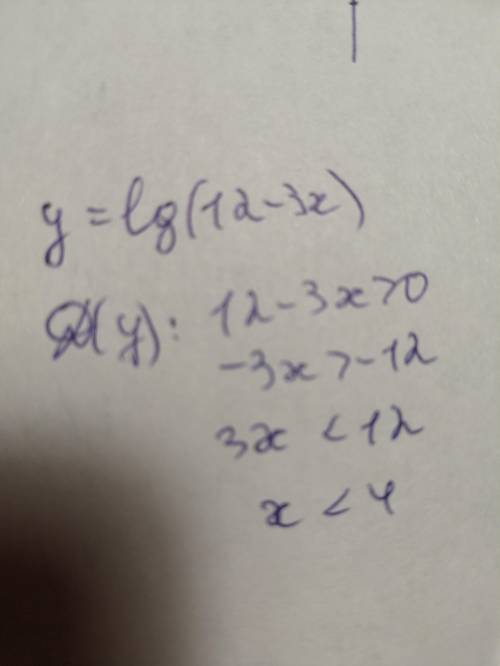 y = lg(12-3x)
D(y): 12-3x>0
-3x>-12
3x <12
x < 4